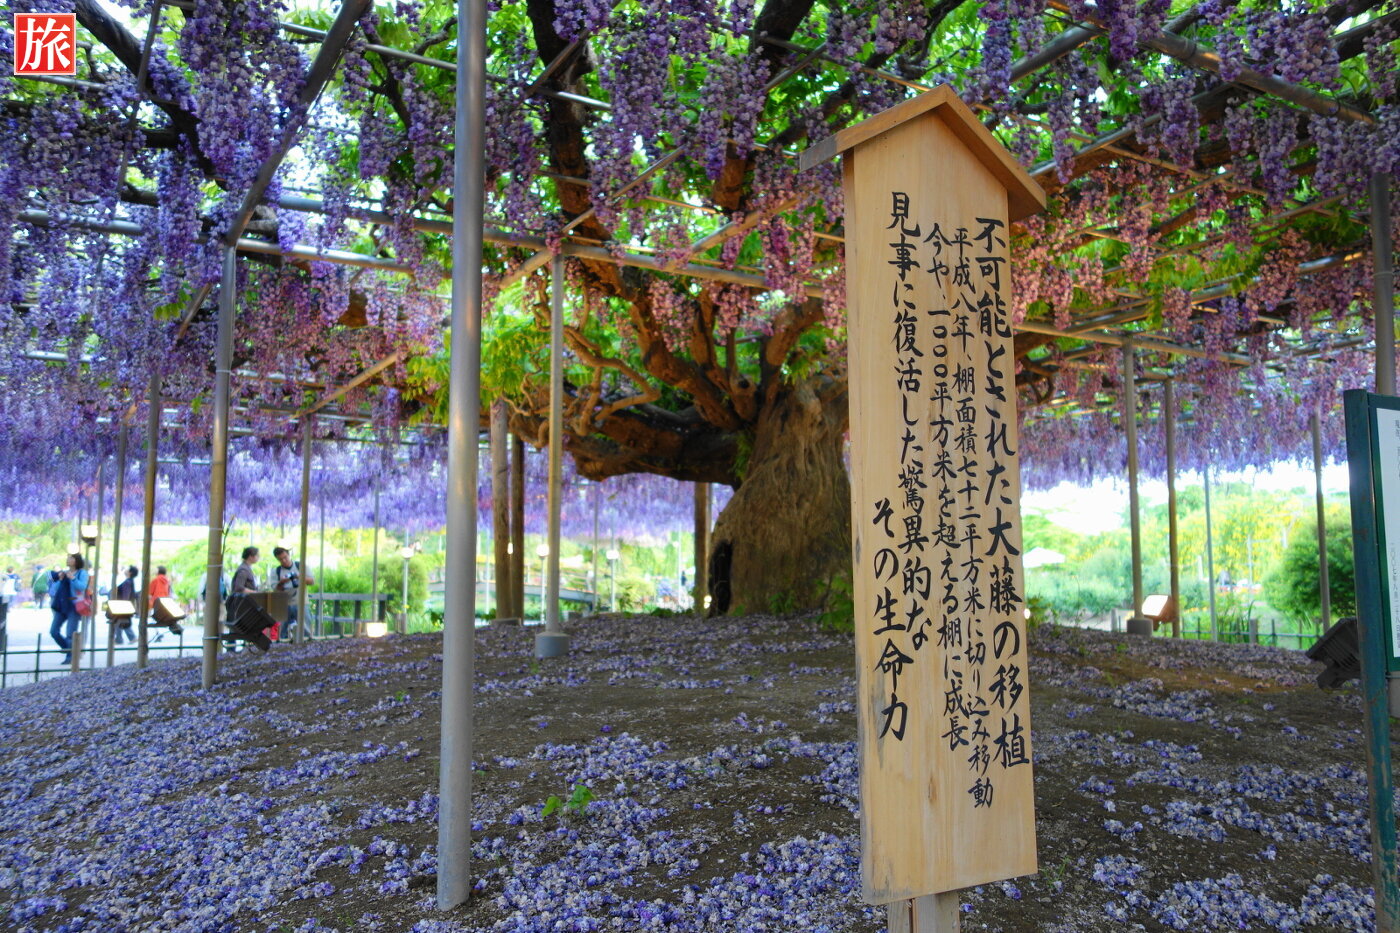 旅
不可能とされた大藤の移植
平成八年、棚面積七十二平方米に切り込み移動
今や、一〇〇〇平方米を超える棚に成長
見事に復活した驚異的な
その生命力